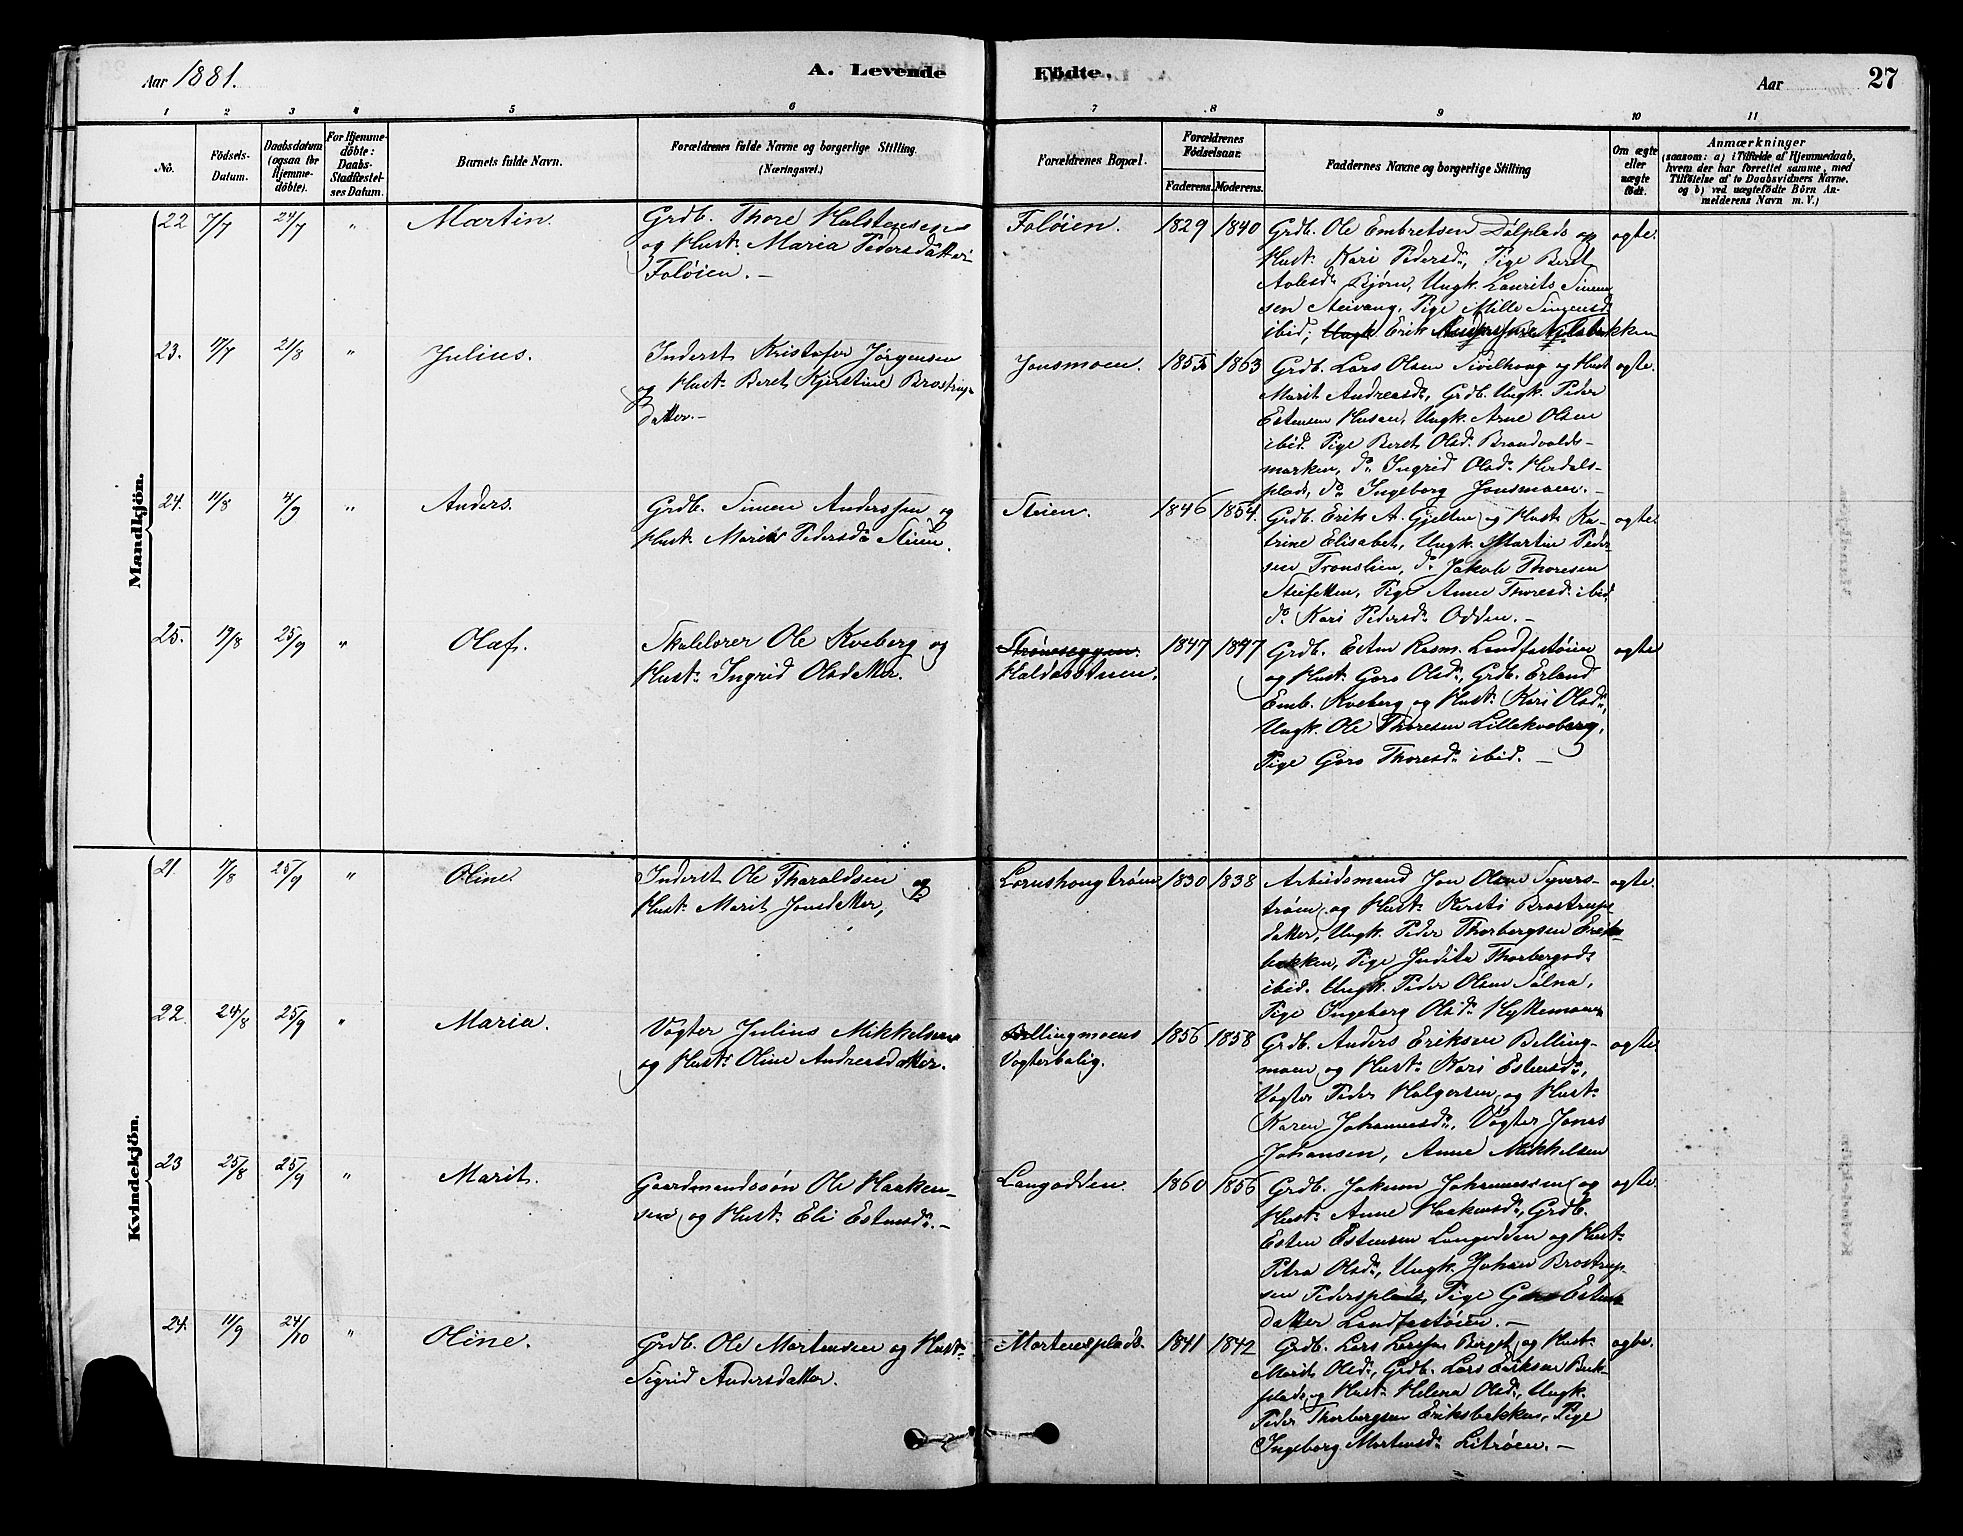 Aar 1881.
A. Levende
Födte.
Aar
27
1
2
3
4
5
6
7
8
9
10
11
No.
Födsels-
Datum.
Daabsdatum
(ogsaa for
Hjemme-
döbte).
For Hjemme-
döbte:
Daabs-
Stadfæstel-
ses Datum.
Barnets fulde Navn.
Forældrenes fulde Navne og borgerlige Stilling
(Næringsvei.)
Forældrenes Bopæl.
Forældrenes
Födselsaar.
Faderens.
Moderens.
Faddernes Navne og borgerlige Stilling
Om ægte
eller
uægte
födt.
Anmærkninger
(saasom: a) i Tilfælde af Hjemmedaab,
hvem der har forrettet samme, med
Tilföielse af to Daabsvidners Navne.
og b) ved uægtefödte Börn An-
melderens Navn m. V.)
Mandkjön.
22 7/7 24/7 " Martin.
Grdb. Thore Halstensen
og Hust: Maria Pedersdatter
Foløien. —
Foløien. 1829 1840
Grdb. Ole Embretsen Dølplads og
Hust: Kari Pedersd:, Pige Beret
Bjørn, Ungk. Laurits Simen-
sen Steivang, Pige Mille Simensd:
ibid; Ungk Erik
ægte.
23. 17/7 21/8 " Julius.
Inderst Kristofer Jørgensen
og Hust: Beret Kjerstine Brostrup-
datter. —
Jonsmoen. 1855 1863
Grdb. Lars Olsen Sivilhaug og Hust
Marit Andreasd:, Grdb. Ungk. Peder
Estensen Husan, Ungk. Arne Olsen
ibid. Pige Beret Olsd: Brandvolds-
marken, d: Ingrid Olsd:
plads, d: Ingeborg Jonsmoen. —
ægte.
24. 11/8 4/9 " Anders.
Grdb. Simen Anderssen og
Hust: Marit Pedersd: Steien.
Steien. 1846 1854.
Grdb. Erik A. Gjelten og Hust: Ka-
trine Elisabet, Ungk. Martin Peder-
sen Tronslien, d: Jakob Thoresen
Steifetten, Pige Anne Thoresd: ibid,
d: Kari Pedersd: Odden. —
ægte.
25. 19/8 25/9 " Olaf.
Skolelærer Ole Kveberg og
Hust: Ingrid Olsdatter.
Strømseggen.
Haldosstuen.
1847 1847
Grdb. Esten Rasm. Landfastøien
og Hust: Goro Olsd:, Grdb. Erland
Emb. Kveberg og Hust: Kari Olsd:,
Ungk. Ole Thoresen Lillekveberg,
Pige Goro Thoresd: ibid. —
ægte
Kvindekjön.
21 7/8 25/9 " Oline.
Inderst Ole Tharaldsen og
Hust: Marit Jonsdatter,
1830 1838
Arbeidsmand Jon Olsen Syvers-
trøen og Hust: Kersti Brostrups
datter, Ungk. Peder Thorbergsen Eriks-
bakken, Pige Indita Thorbergsd:
ibid. Ungk. Peder Olsen Sølna,
Pige Ingeborg Olsd: Hyttemoen
ægte.
22. 24/8 25/9 " Maria.
Vogter Julius Mikkelsen
og Hust: Oline Andreasdatter.
Bellingmoens
Vogterbolig.
1856 1858
Grdb. Anders Eriksen Belling-
moen og Hust: Kari Estensd:,
Vogter Peder Holgersen og Hust:
Karen Johannesd:, Vogter Jonas
Johansen, Anne Mikkelsen
ægte.
23 25/8 25/9 " Marit.
Gaardmandssøn Ole Haaken-
sen og Hust: Eli Estensd:. —
Langodden. 1860 1856
Grdb. Jakum Johannessen og
Hust: Anne Haakensd:, Grdb.
Esten Estensen Langodden og Hust:
Petra Olsd:, Ungk. Johan Brostrup-
sen Pedersplads, Pige Goro Estens
datter Landfastøien. —
ægte.
24. 11/9 24/10 " Oline.
Grdb. Ole Mortensen og Hust:
Sigrid Andersdatter.
Mortensplads. 1841 1842
Grdb. Lars Larsen Berget og Hust:
Marit Olsd:, Grdb. Lars Eriksen Bak-
plads og Hust: Helena Olsd:, Ungk.
Peder Thorbergsen Eriksbakken, Pige
Ingeborg Mortensd: Litrøen. —
ægte.